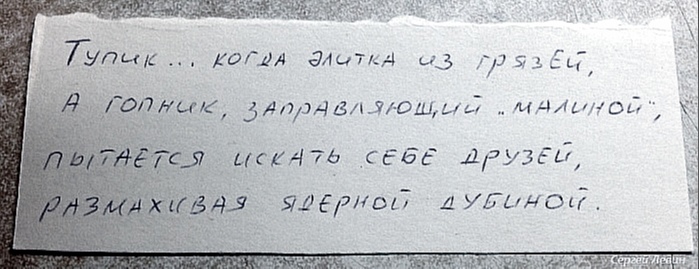 Тупик... когда элитка из грязей,
А гопник, заправляющий „малиной",
пытается искать себе друзей,
размахивая ядерной дубиной.
Сергей Левин